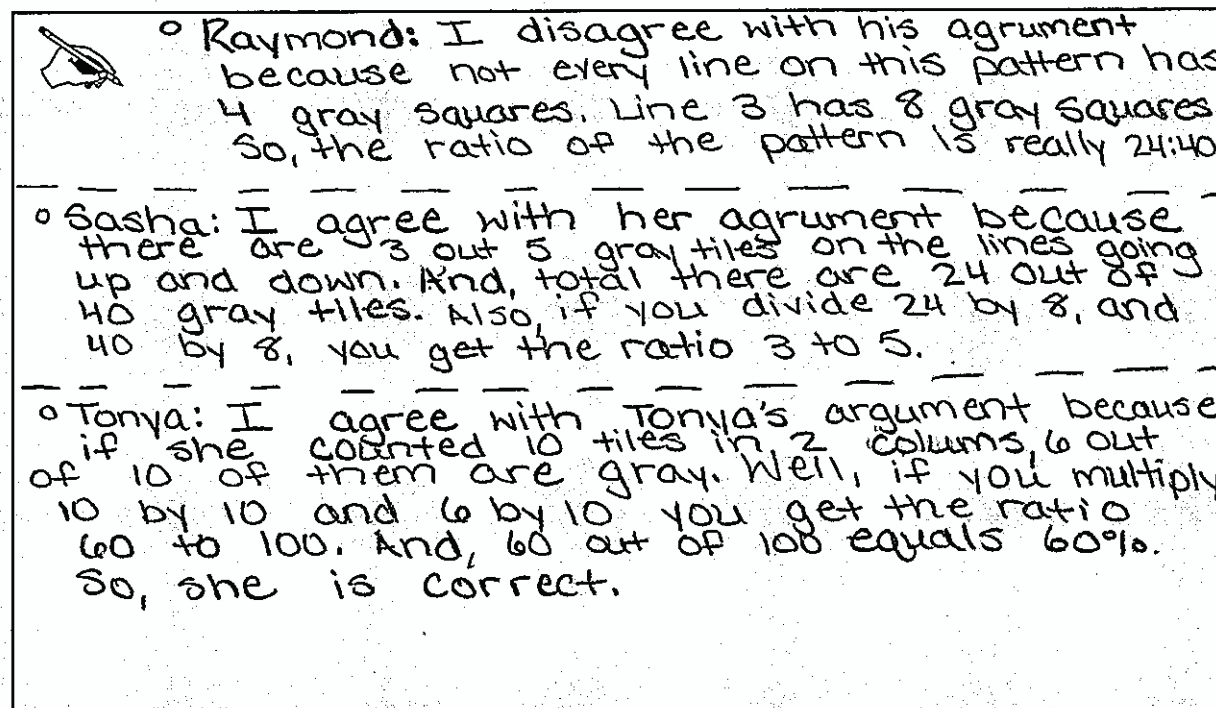 ° Raymond: I disagree with his agrument
because not every line on this pattern has
4 gray squares. Line 3 has 8 gray squares
So, the ratio of the pattern is really 24:40
° Sasha: I agree with her agrument because
there are 3 out 5 gray tiles on the lines going
up and down. And, total there are 24 out of
40 gray tiles. Also, if you divide 24 by 8, and
40 by 8, you get the ratio 3 to 5.
° Tonya: I agree with Tonya's argument because
if she counted 10 tiles in 2 colums, 6 out
of 10 of them are gray. Well, if you multiply
10 by 10 and 6 by 10 you get the ratio
60 to 100. And, 60 out of 100 equals 60%.
So, she is correct.